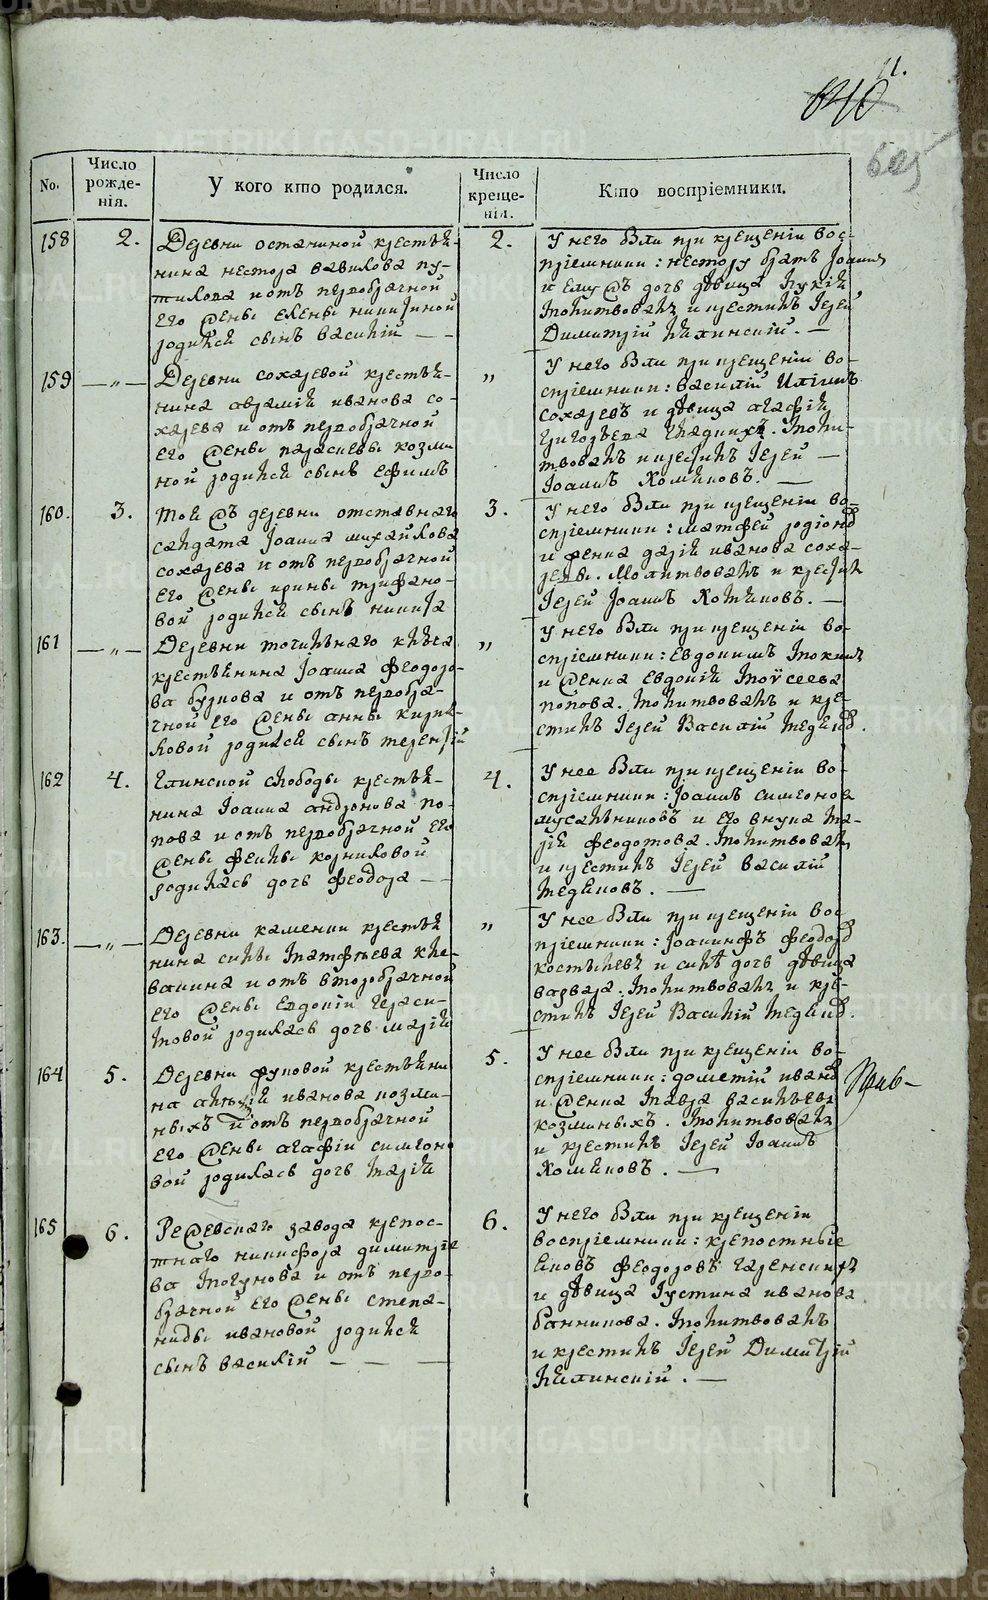 11.
840
625
No.
Число рожде-
нія.
У кого кто родился.
Число креще-
нія.
Кто воспріемники.
158
2.
Деревни останиной крестья-
нина нестора вавилова пу-
тилова и отъ первобрачной
его жены елены никитиной
родился сынъ василій — —
2.
У него были при крещеніи вос-
пріемники: нестору братъ Іоаннъ
и ему жъ дочь дѣвица
Молитвовалъ и крестилъ Іерей
Димитрій —
159
— „ —
Деревни сохаревой крестья-
нина иванова со-
харева и отъ первобрачной
его жены парасковьи козми-
ной родился сынъ ефимъ
„
У него были при крещеніи во-
спріемники: василій
сохаревъ и дѣвица агафія
Моли-
твовалъ и крестилъ Іерей —
Іоаннъ Хомяковъ. —
160.
3.
Той жъ деревни отставнаго
салдата Іоанна михайлова
сохарева и отъ первобрачной
его жены ирины трифано-
вой родился сынъ никита
3.
У него были при крещеніи во-
спріемники: матфей родіонов
и женка дарія иванова соха-
ревы. Молитвовалъ и крестилъ
Іерей Іоаннъ Хомяковъ. —
161
— „ —
Деревни точильнаго ключа
крестьянина Іоанна Феодоро-
ва буркова и отъ первобра-
чной его жены анны кирил-
ловой родился сынъ терентій
„
У него были при крещеніи во-
спріемники: Евдокимъ
и женка Евдокія Моѵсеева
попова. Молитвовалъ и кре-
стилъ Іерей Василій
162
4.
Глинской слободы крестья-
нина Іоанна андронова по-
пова и отъ первобрачной его
жены феклы корниловой
родилась дочь феодора — —
4.
У нее были при крещеніи во-
спріемники: Іоаннъ симеонов
мусальниковъ и его внука Ма-
рія феодотова. Молитвовалъ
и крестилъ Іерей василій
—
163.
— „ —
Деревни каменки крестья
нина силы Матфѣева кле-
вакина и отъ второбрачной
его жены Евдокіи Гераси-
мовой родилась дочь марія
„
У нее были при крещеніи вос
пріемники: Іоакинфъ феодоров
и силы дочь дѣвица
варвара. Молитвовалъ и кре-
стилъ Іерей Василій
164
5.
Деревни крестьяни
на иванова козми-
ныхъ и отъ первобрачной
его жены агафіи симеоно
вой родилась дочь Марія
5.
У нее были при крещеніи во-
спріемники: дометій иванов
и женка Мавра васильева
козминыхъ. Молитвовалъ
и крестилъ Іерей Іоаннъ
Хомяковъ. —
165
6.
Режевскаго завода крепос-
тнаго никифора димитріе
ва Могунова и отъ перво-
брачной его жены степа-
ниды ивановой родился
сынъ василій — — —
6.
У него были при крещеніи
воспріемники: крепостные
Феодоровъ
и дѣвица Іустина иванова
банникова. Молитвовалъ
и крестилъ Іерей Димитрій
—
METRIKI.GASO-URAL.RU